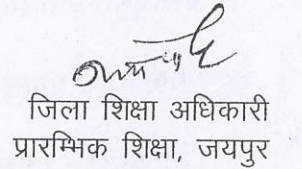 जिला शिक्षा अधिकारी
प्रारम्भिक शिक्षा, जयपुर